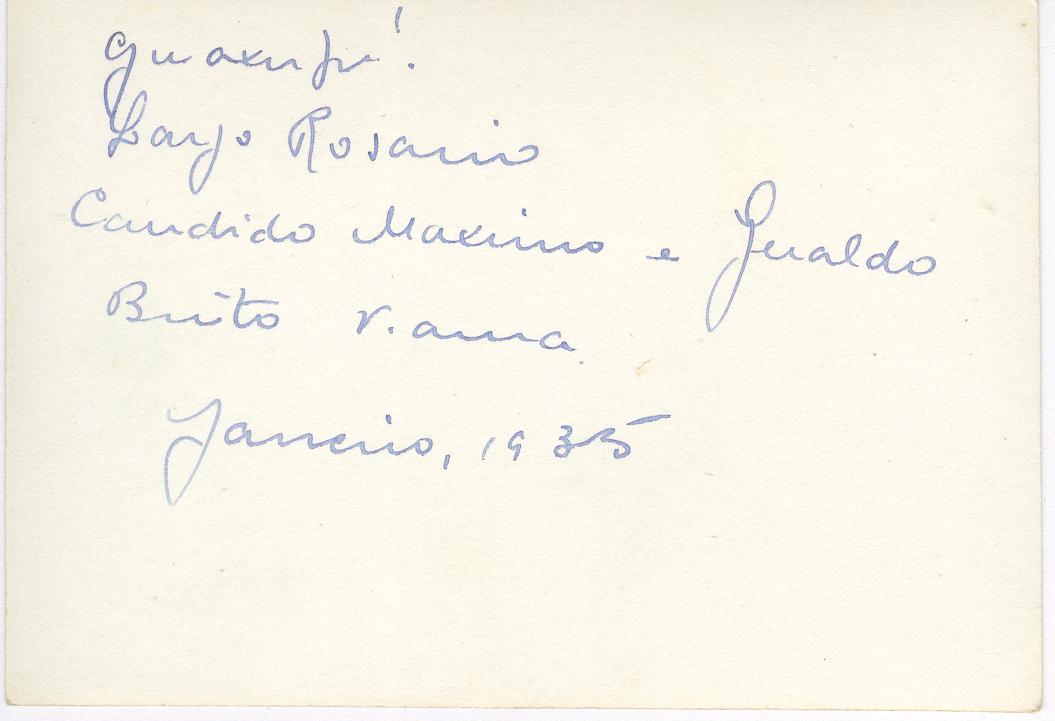 Guaxupé.
Largo Rosario
Candido Maximo e Geraldo
Brito Viana.
Janeiro, 1935